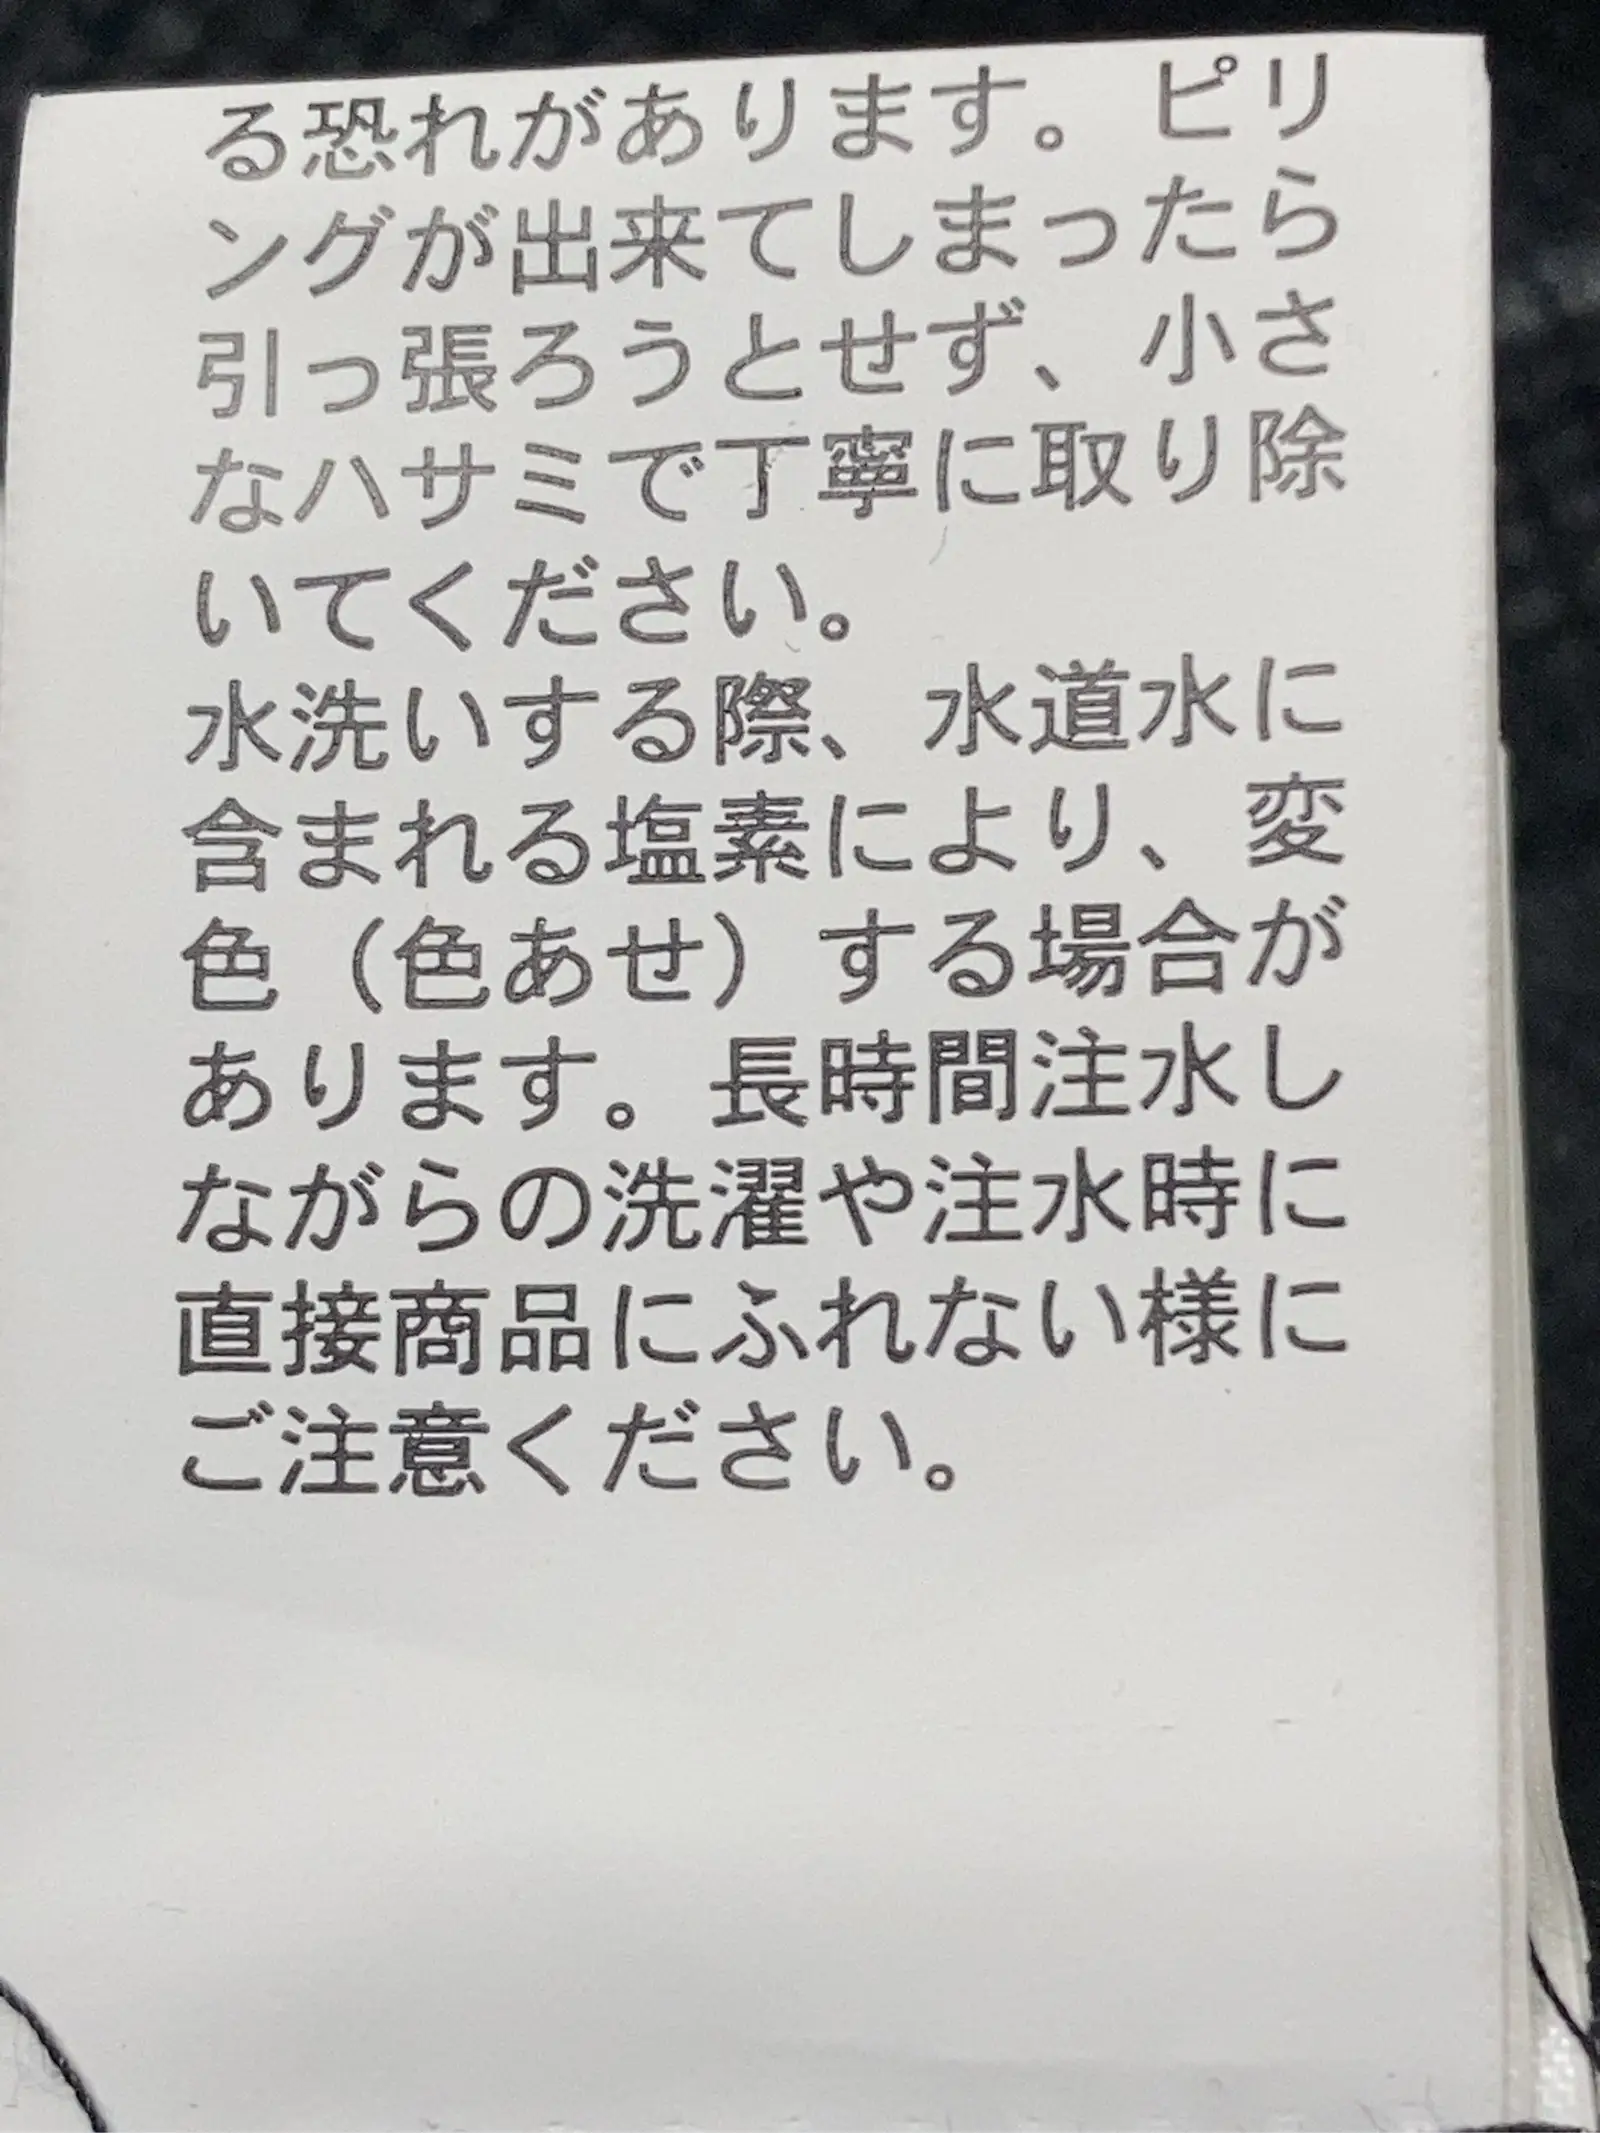 る恐れがあります。ピリ
ングが出来てしまったら
引っ張ろうとせず、小さ
なハサミで丁寧に取り除
いてください。
水洗いする際、水道水に
含まれる塩素により、変
色（色あせ）する場合が
あります。長時間注水し
ながらの洗濯や注水時に
直接商品にふれない様に
ご注意ください。